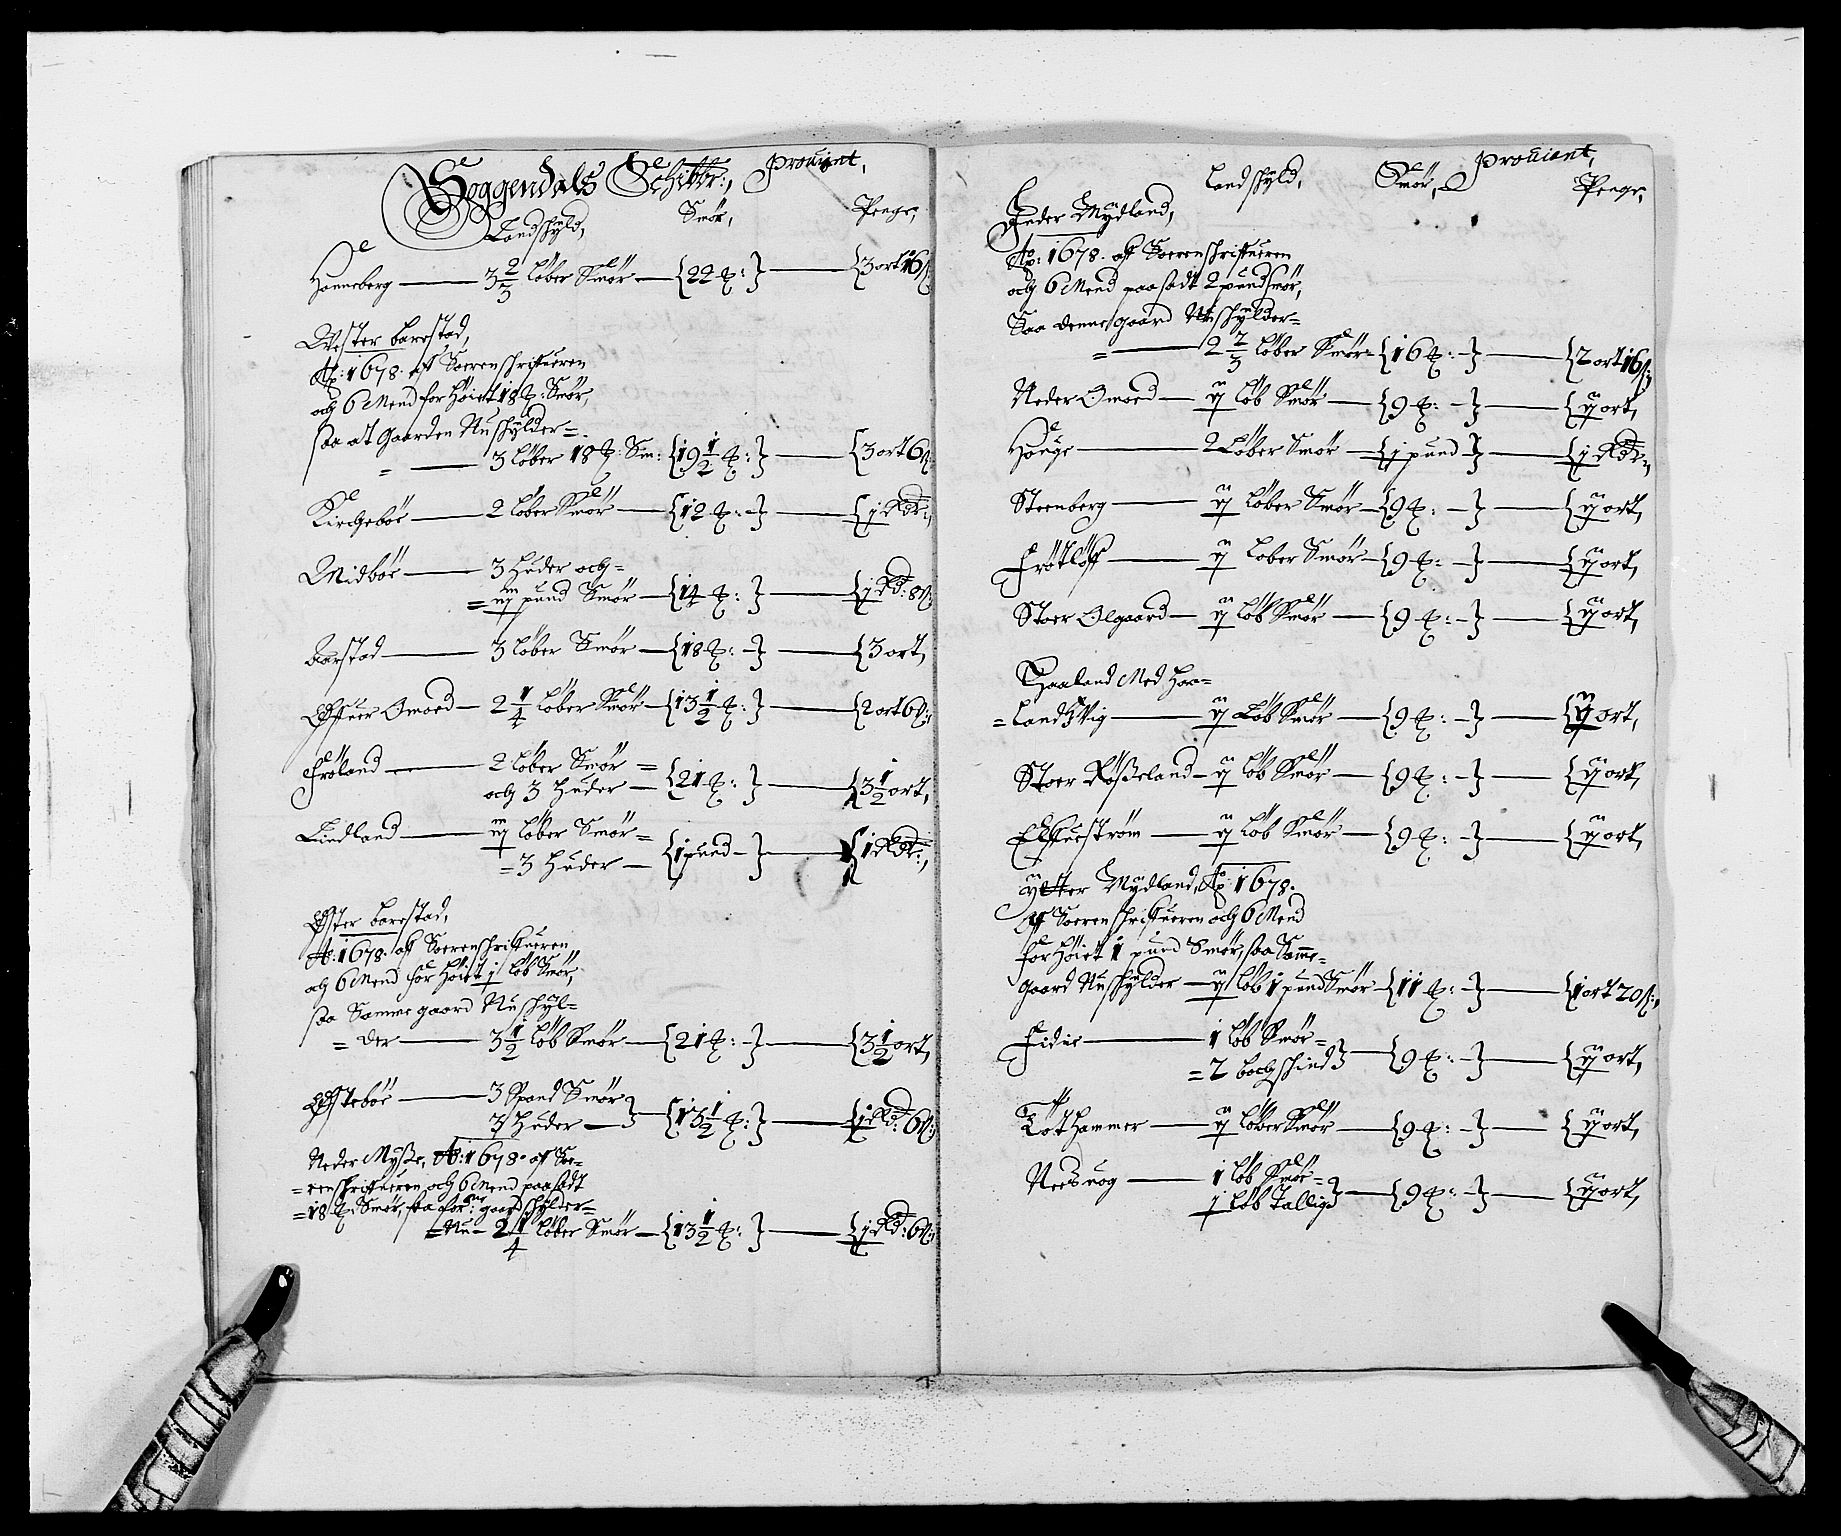 Soggendals Schibbr:, Proviant,
Landschyld, Smör, Penge,
Honneberg — 3 2/3 Löber Smör — {22 ℔: } — {3 ort 16 ß
Wester Barstad,
Ao: 1678. aff Soerenschriffueren
och 6 Mend forhöiet 18 ℔: Smör,
saa at Gaarden Nu schylder =
= — 3 Löber 18 ℔: Sm: {19 1/2 ℔: } — {3 ort 6 ß
Kircheböe — 2 Löber Smör — {12 ℔: } — {j Rdr:,
Midböe — 3 Huder och =
= iij pund Smör — {14 ℔: } — {j Rd: 8 ß
Barstad — 3 Löber Smör — {18 ℔: } — {3 ort,
Öffuer Omoed — 2 1/4 Löber Smör — {13 1/2 ℔: } — {2 ort 6 ß:
Fröland — 2 Löber Smör =
och 3 Huder — {21 ℔: } — {3 1/2 ort,
Lindland — iij Löber Smör =
= 3 Huder — {1 pund } — {1 Rdr:,
Öster Barstad,
Ao: 1678. aff Soerenschriffueren
och 6 Mend for höiet j Löb Smör,
saa Samme gaard Nu schyl=
= der — 3 1/2 Löb Smör — {21 ℔: } — {3 1/2 ort,
Östeböe — 3 Spand Smör
3 Huder — } {13 1/2 ℔: } — {j Rd: 6 ß:
Neder Mysse, Ao: 1678. aff Soe=
= renschriffueren och 6 Mend paasadt
= 18 ℔: Smör, saa for:ne gaard schylder=
= Nu — 2 1/4 Löber Smör — {13 1/2 ℔: } — {j Rd: 6 ß:
Landschyld, Smör, Proviant,
Penge,
Neder Mydland,
Ao: 1678. aff Soerenschriffueren
och 6 Mend paasadt 2 pund smör,
Saa denne gaard Nu schylder=
= — 2 2/3 Löber Smör = {16 ℔: } — {2 ort 16 ß:
Neder Omoed — ij Löb Smör — {9 ℔: } — {ij ort,
Houge — 2 Löber Smör — {j pund } — {j Rdr:,
Steenberg — ij Löber Smör — {9 ℔: } — {ij ort,
Frötlöff — ij Löber Smör — {9 ℔: } — {ij ort,
Stoer Ølgaard — ij Löb Smör — {9 ℔: } — {ij ort,
Haaland Med Haa=
= Landsvig — ij Löb Smör — {9 ℔: } — {ij ort,
Stoer Røsseland — ij Löb Smör — {9 ℔: } — {ij ort,
Elffueström — ij Löb Smör — {9 ℔: } — {ij ort,
Ÿtter Mydland, Ao: 1678.
Aff Soerenschriffueren och 6 Mend
for höiet 1 pund Smör, saa Samme
gaard Nu schylder — ij Löb 1 pund Smör {11 ℔: } — {1 ort 20 ß:,
Fidie — 1 Löb Smör =
= 2 bochschind } — {9 ℔: } — {ij ort,
Löthammer — ij Löber Smör — {9 ℔: } — {ij ort,
Neesvog — 1 Löb Smör =
j Löb Tallig } — {9 ℔: } — {ij ort,